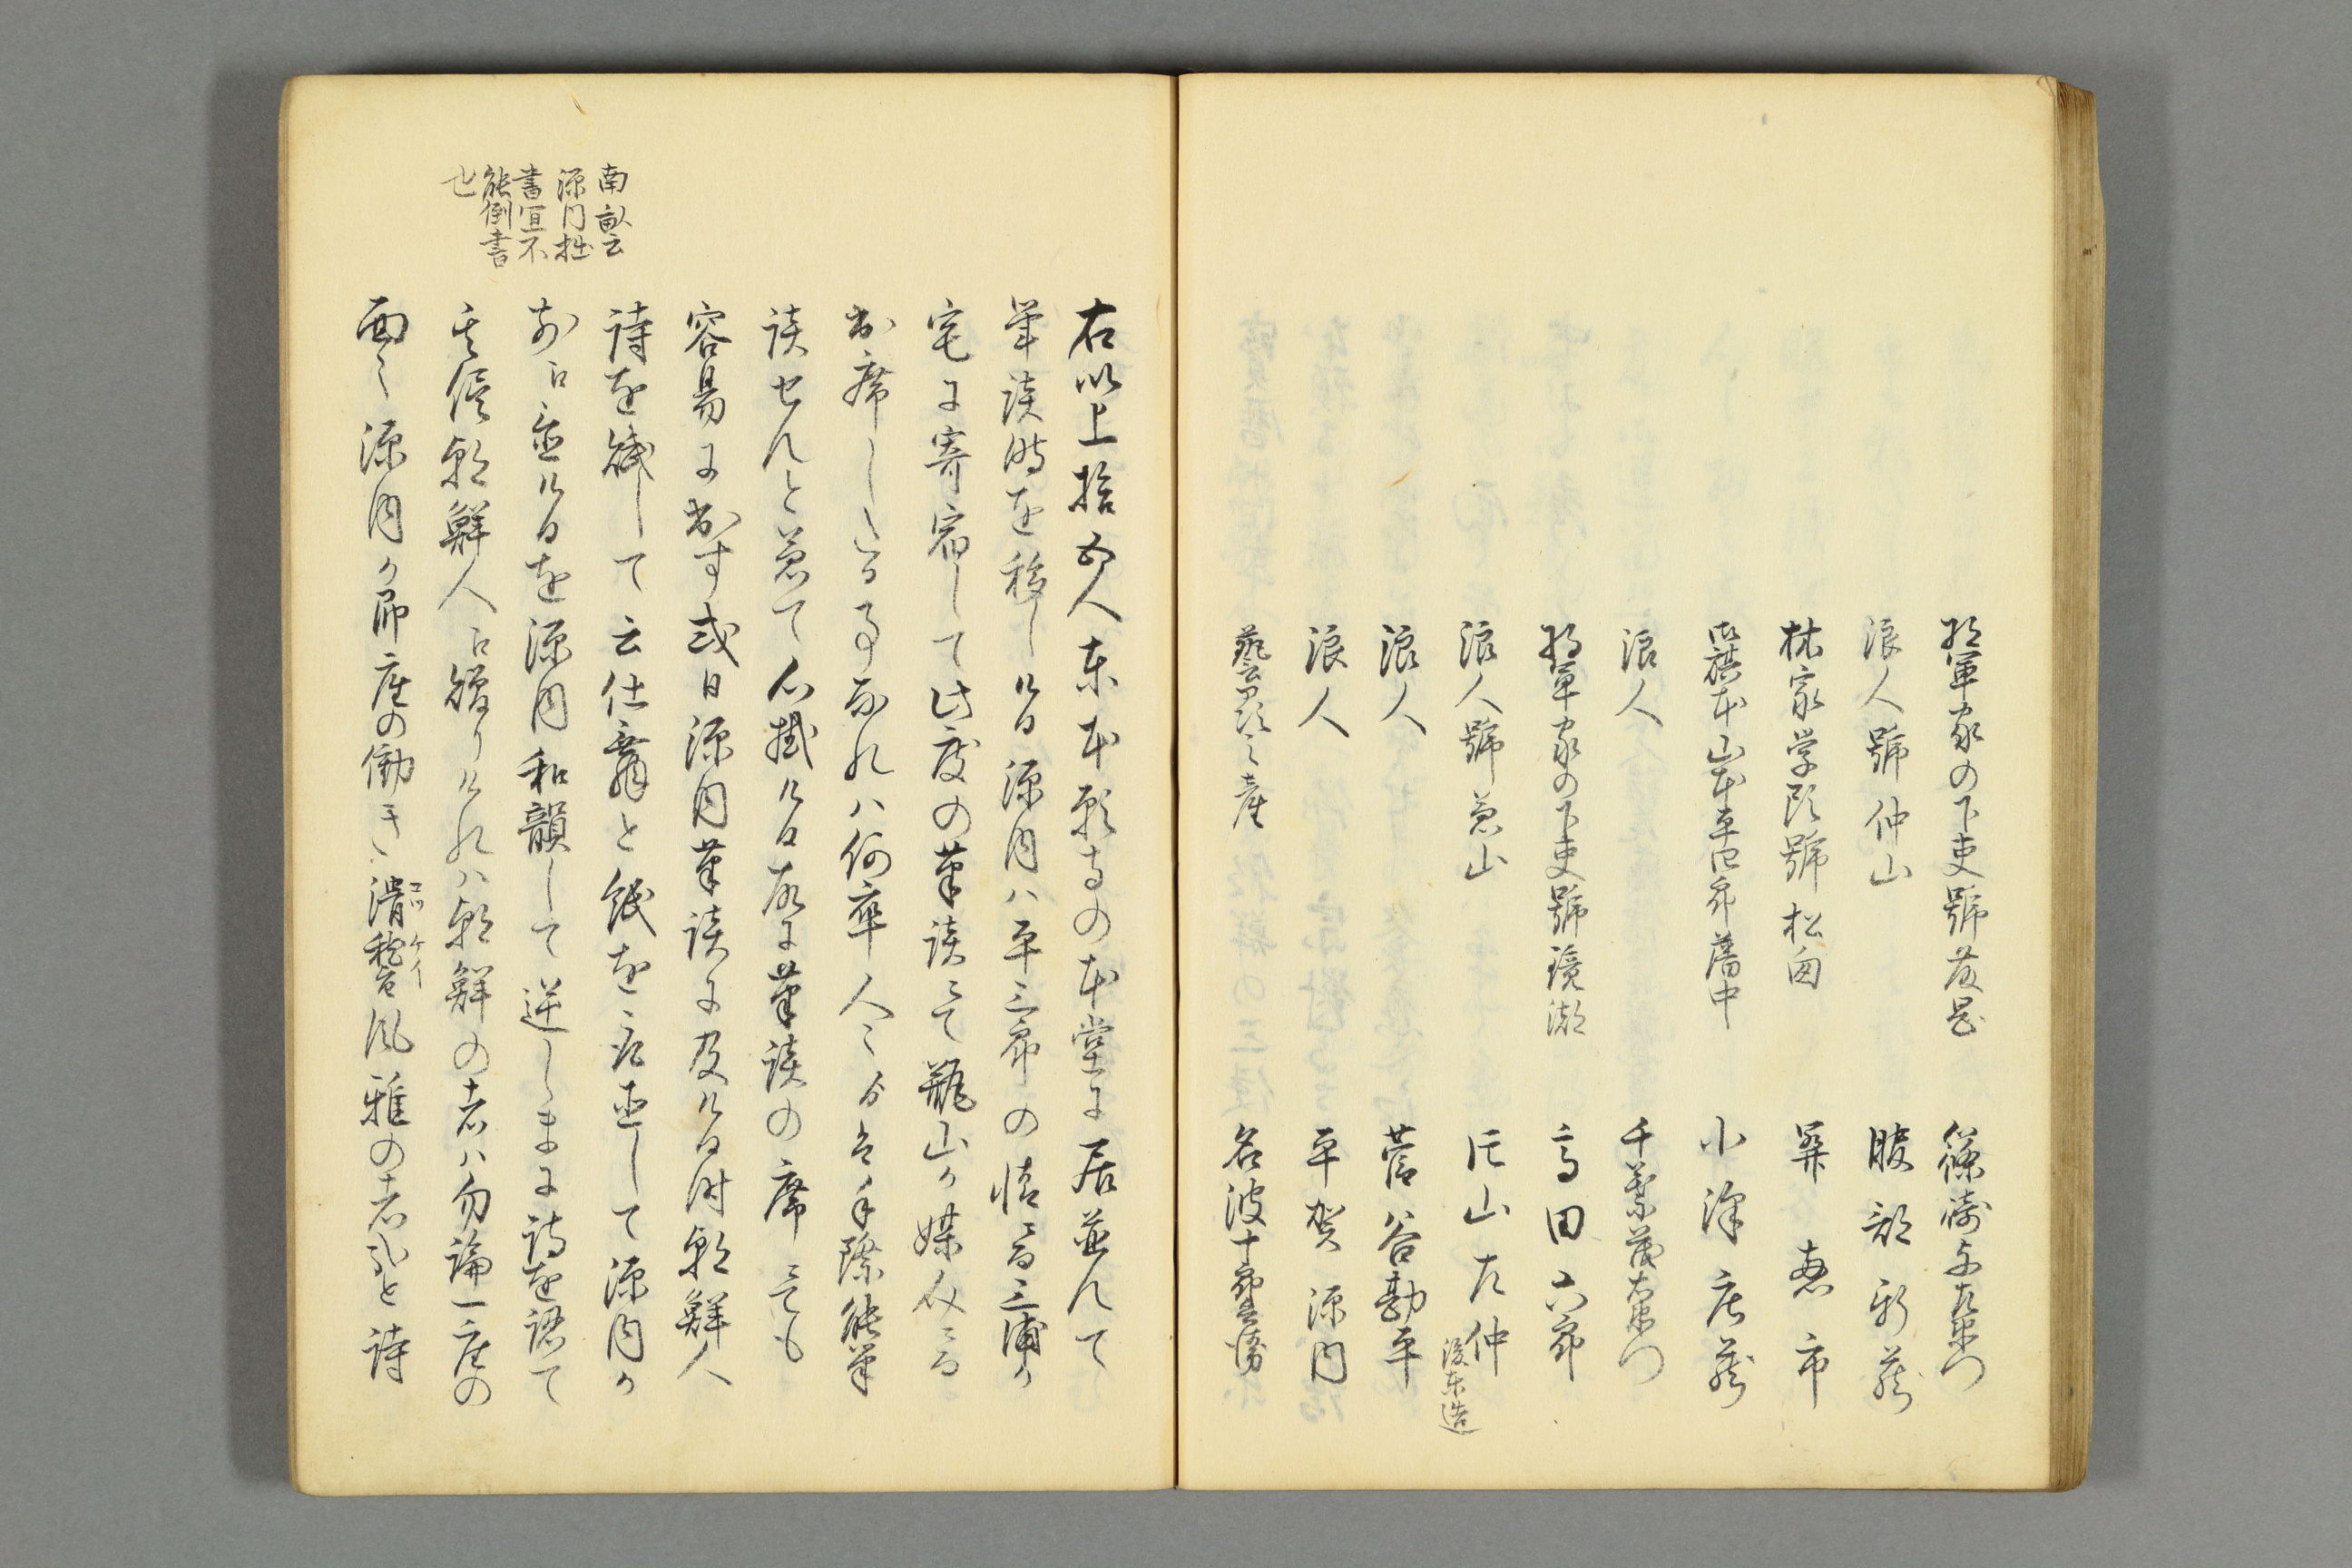 将軍家の下吏號 篠崎与左衛門
浪人號仲山 服部新藏
林家学頭號松 恵市
御旗本山本平四郎藩中 小津庄藏
浪人 千葉茂右衛門
将軍家の下吏號鏡湖 高田六郎
浪人號兼山 片山左仲 後東造
浪人 菅谷勘平
浪人 平賀源内
藝 之産 名波十郎兵衛
右以上拾五人東本願寺の本堂に居並んて
筆談時を移しける源内ハ平三郎の 三浦か
宅に寄宿して此度の筆談にて 山か媒介にて
出席したる事なれハ何卒人々より手際能筆
談せんと兼て心掛ける故に筆談の席にても
容易に出す或日源内筆談に及ける時朝鮮人
詩を賦して云仕舞と紙を 直して源内か
前に置けるを源内和韻して逆しまに詩を認て
其侭朝鮮人に贈りけれハ朝鮮の者ハ勿論一座の
面々源内か即座の働き滑稽風雅の者 と詩
コツ ケイ
南畝云
源内拙
書宜不
能倒書
也